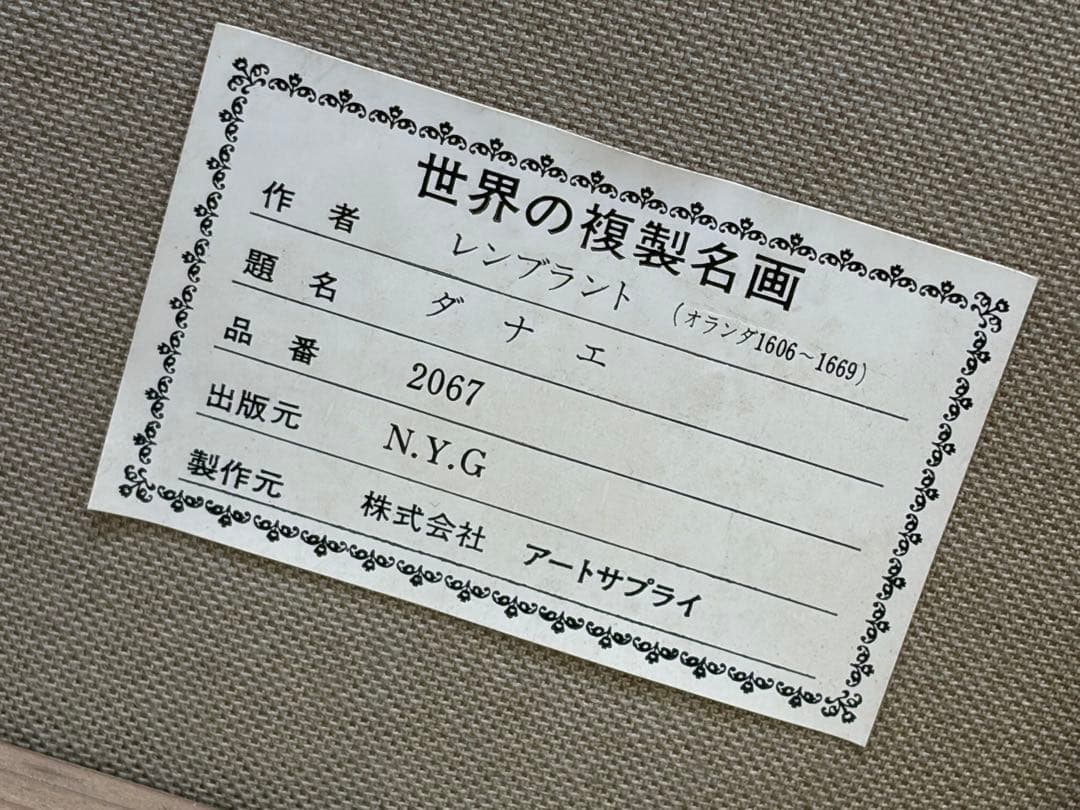 世界の複製名画
作者 レンブラント (オランダ1606～1669)
題名 ダナエ
品番 2067
出版元 N.Y.G
製作元 株式会社 アートサプライ